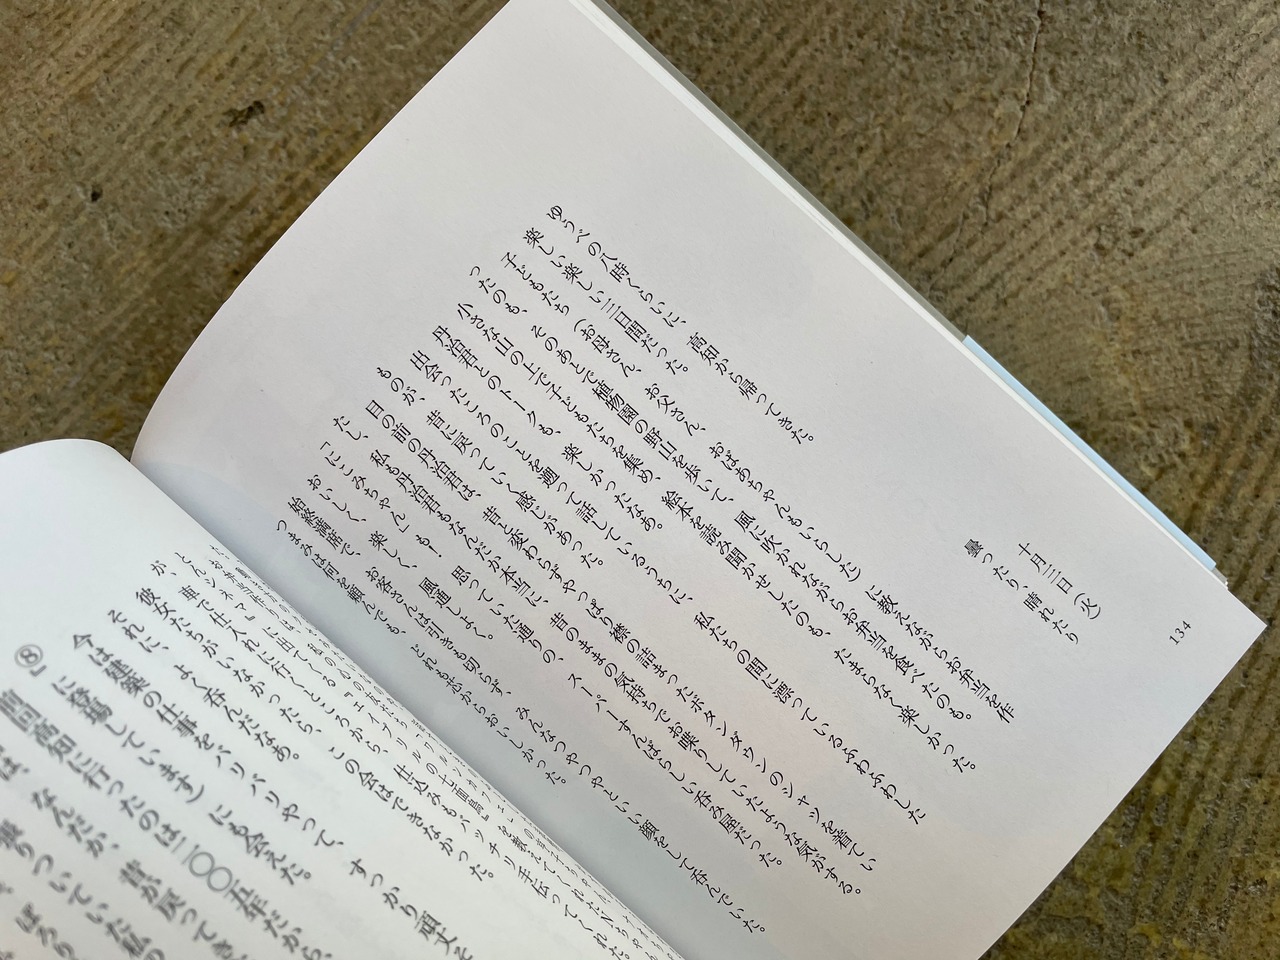 134
十月三日（火）
曇ったり、晴れたり
ゆうべの八時くらいに、高知から帰ってきた。
楽しい楽しい三日間だった。
子どもたち（お母さん、お父さん、おばあちゃんもいらした）に教えながらお弁当を作
ったのも、そのあとで植物園の野山を歩いて、風に吹かれながらお弁当を食べたのも。
小さな山の上で子どもたちを集め、絵本を読み聞かせしたのも、たまらなく楽しかった。
丹治君とのトークも、楽しかったなあ。
出会ったころのことを遡って話しているうちに、私たちの間に漂っているふわふわした
ものが、昔に戻っていく感じがあった。
目の前の丹治君は、昔と変わらずやっぱり襟の詰まったボタンダウンのシャツを着てい
たし、私も丹治君もなんだか本当に、昔のままの気持ちでお喋りしていたような気がする。
「にこみちゃん」も！ 思っていた通りの、スーパーすんばらしい呑み屋だった。
おいしく、楽しく、風通しよく。
始終満席で、お客さんは引きも切らず、みんなつやつやといい顔をして呑んでいた。
つまみは何を頼んでも、どれも芯からおいしかった。
とんシネマ』に出てくる『エイプリルの七面鳥』
車で仕入れに行くところから、仕込みもバッチリ手伝ってくれた。
が、彼女たちがいなかったら、この会はできなかった。
それに、よく呑んだなあ。
今は建築の仕事をバリバリやって、すっかり頑丈そ
に登場しています）にも会えた。
高知に行ったのは二〇〇五年だから、
なんだか、昔が戻ってき
乗りついていた私の